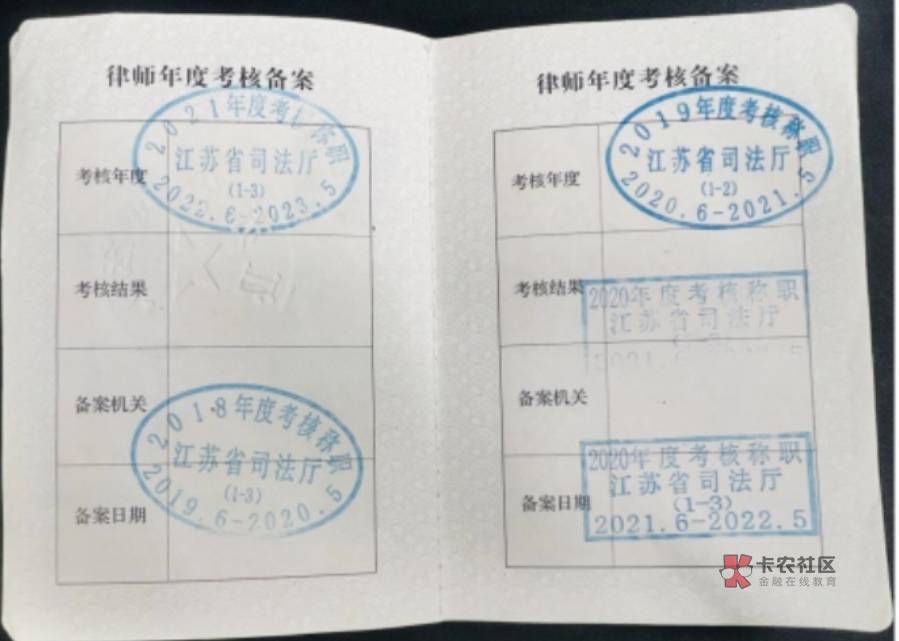 律师年度考核备案
2021年度考 称职
考核年度
江苏省司法厅
(1-3)
2022.6-2023.5
考核结果
备案机关
2018年度考核称职
江苏省司法厅
(1-3)
2019.6-2020.5
备案日期
律师年度考核备案
2019年度考核称职
考核年度
江苏省司法厅
(1-2)
2020.6-2021.5
考核结果
2020年度考核称职
江苏省司法厅
2021.6-2022.5
备案机关
2020年度考核称职
江苏省司法厅
备案日期
(1-3)
2021.6-2022.5
卡农社区
金融在线教育